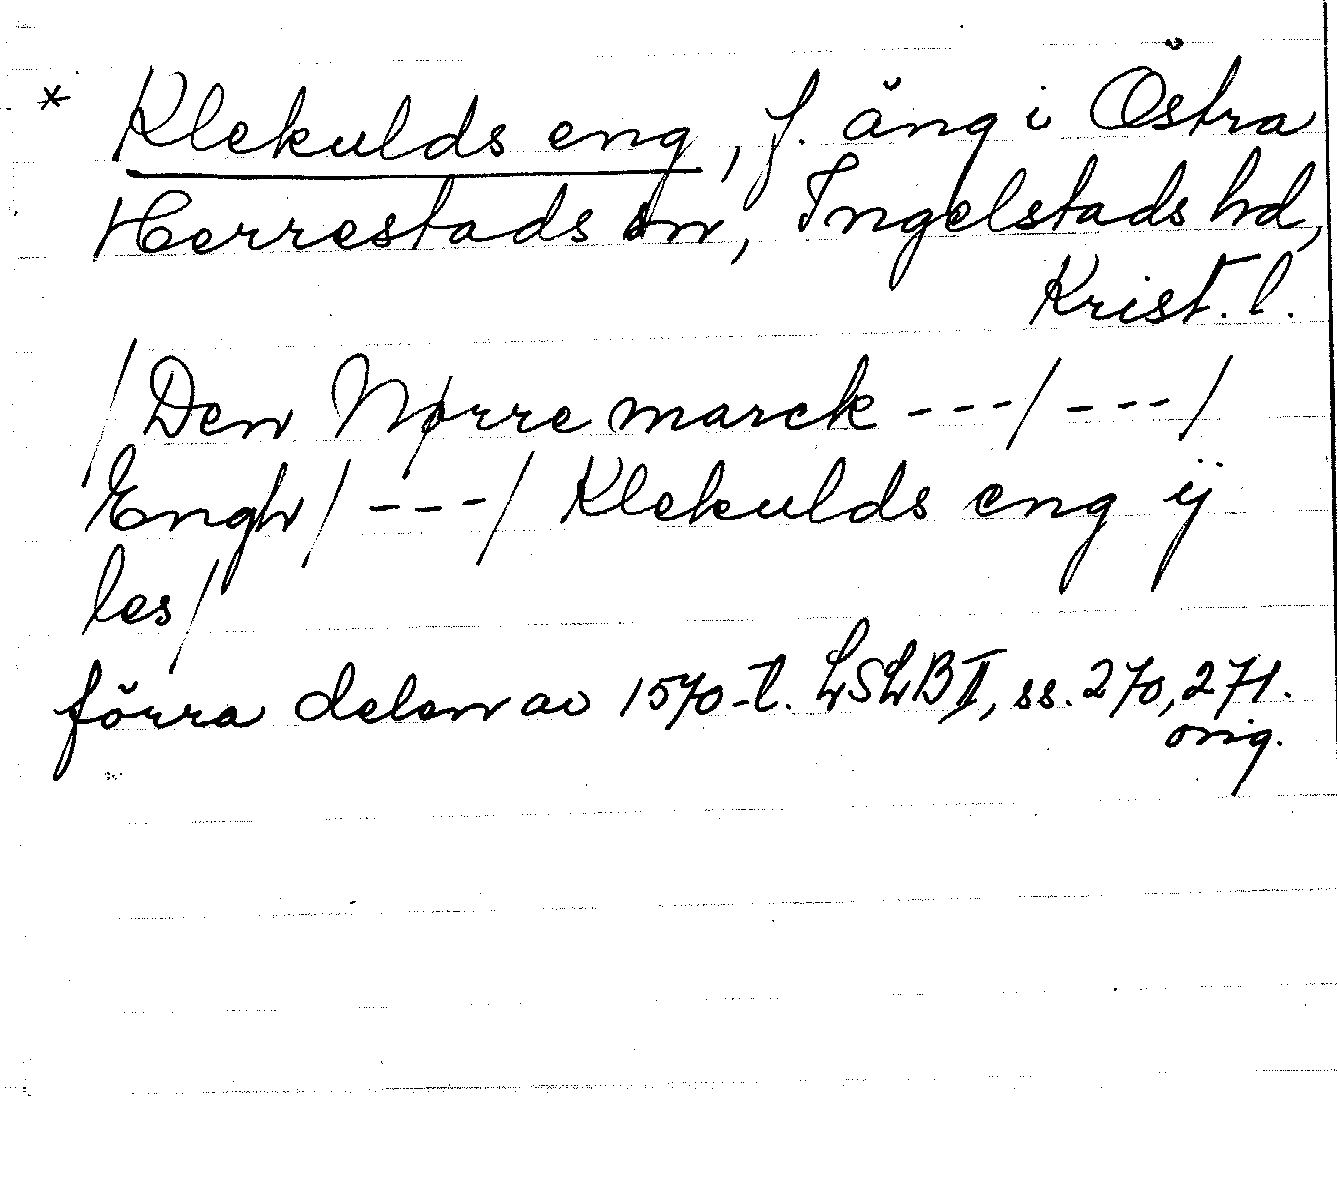 * Klekulds eng, f. äng i Östra
Herrestads sn, Ingelstads hd,
Krist. l.
/Den Nørre marck ---/ ---/
Engh/ ---/ Klekulds eng ij
les/
förra delen av 1570-t. LSLB II, ss. 270, 271.
orig.